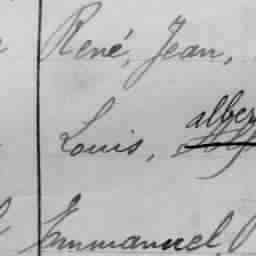 René, Jean,
alber
Louis,
Emmanuel,